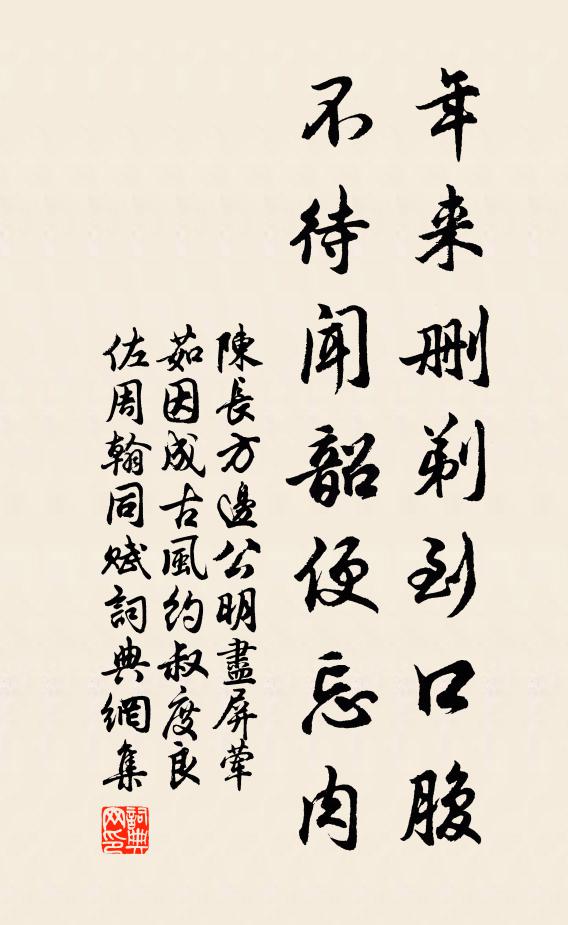 年来删剃到口腹
不待闻韶便忘肉
陳長方邊公明盡屏葷
茹因成古風約叔度良
佐周翰同赋詞典網集
詞典网印